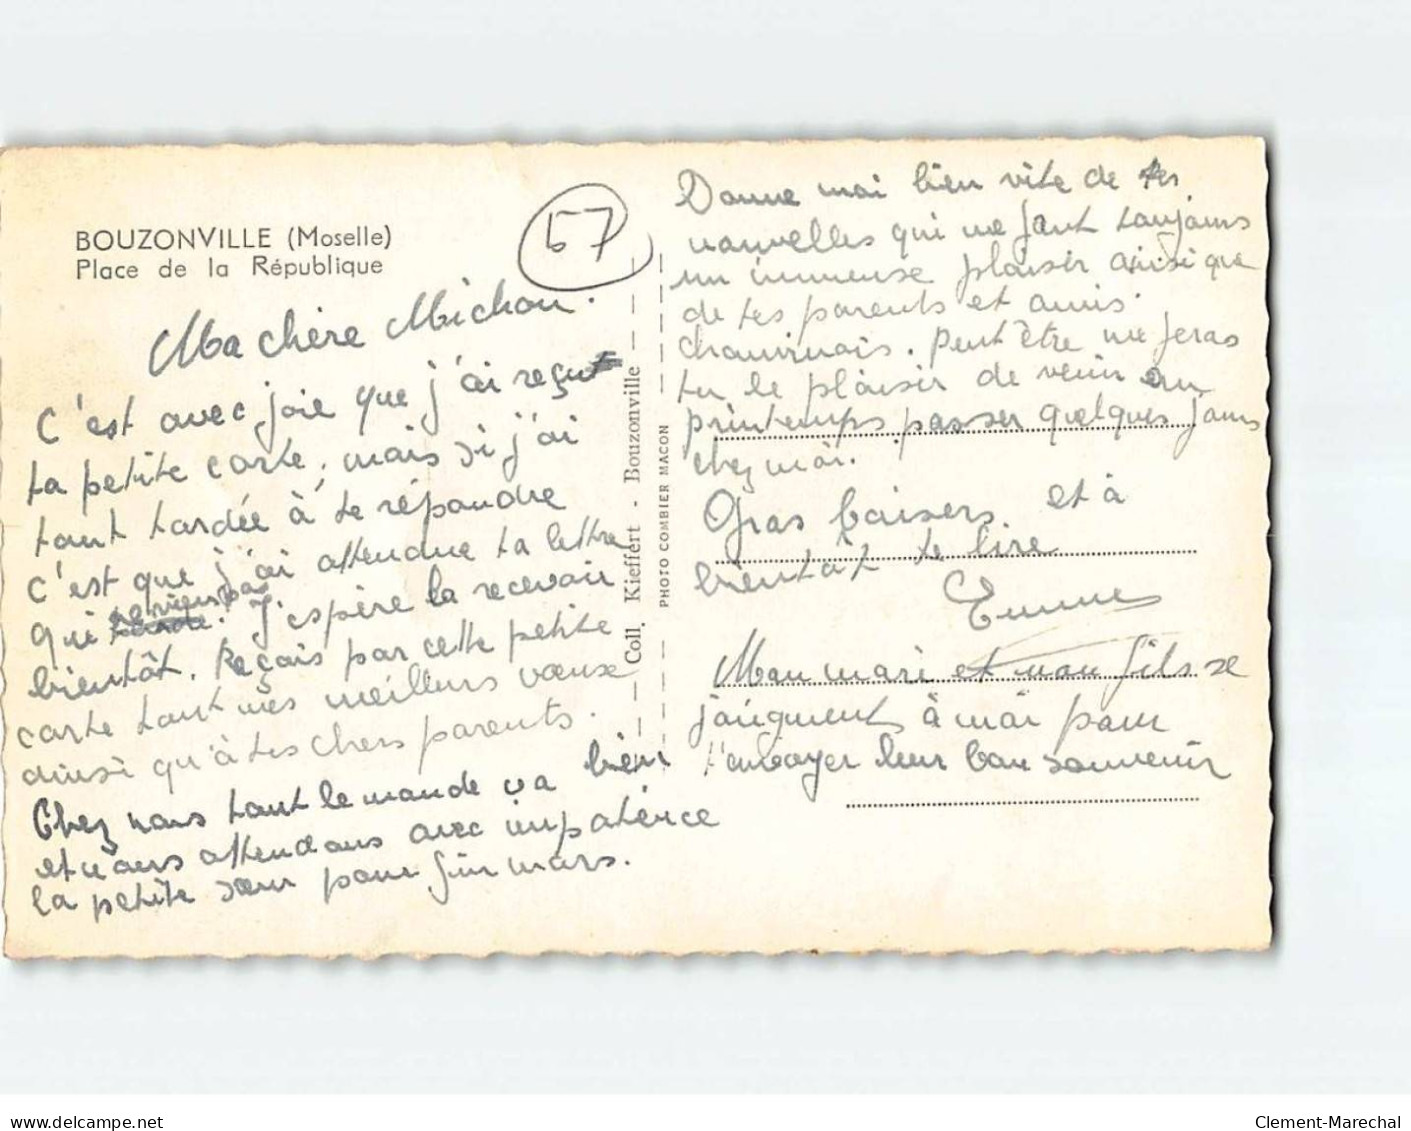 BOUZONVILLE (Moselle)
Place de la République
57
Ma chère Michou.
C'est avec joie que j'ai reçu
ta petite carte, mais si j'ai
tant tardée à te répondre
c'est que j'ai attendue ta lettre
qui ne viens pas. J'espère la recevoir
bientôt. Reçois par cette petite
carte tout mes meilleurs voeux
ainsi qu'à tes chers parents.
Chez nous tout le monde va bien
et nous attendons avec impatience
la petite sœur pour fin mars.
Coll. Kieffert - Bouzonville
PHOTO COMBIER MACON
Donne moi bien vite de tes
nouvelles qui me font toujours
un immense plaisir ainsi que
de tes parents et amis
chauvinois. Peut être me feras
tu le plaisir de venir au
printemps passer quelques jours
chez moi.
Gros baisers et à
bientôt te lire
Emme
Mon mari et mon fils se
joignent à moi pour
t'envoyer leur bon souvenir
www.delcampe.net
Clement-Marechal